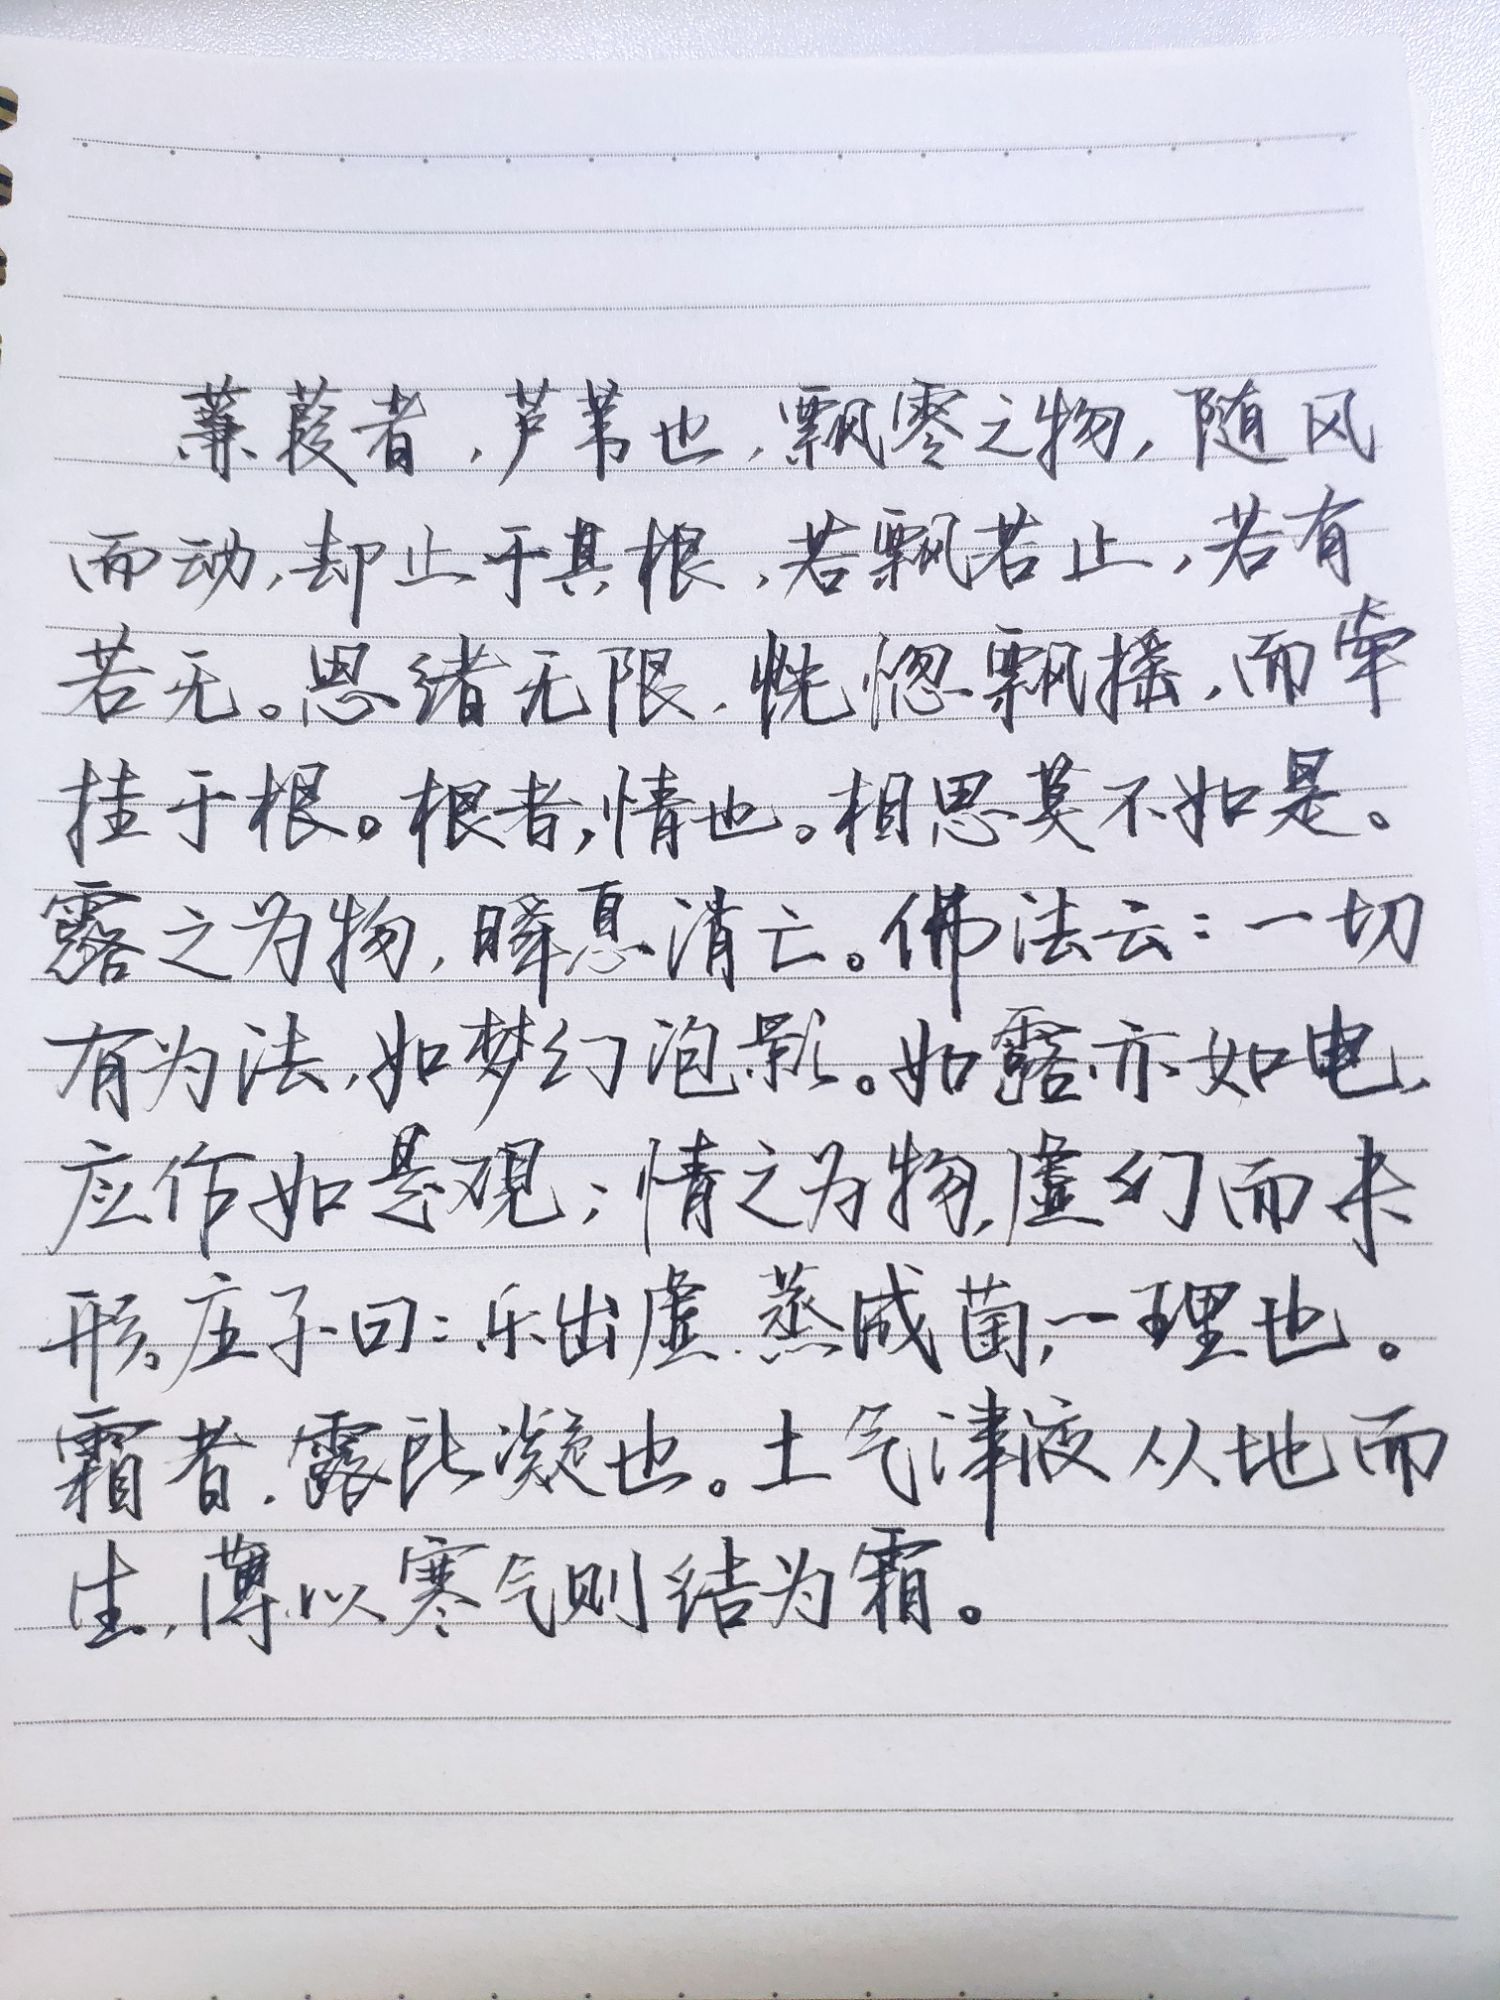 蒹葭者，芦苇也，飘零之物，随风
而动，却止于其根，若飘若止，若有
若无。思绪无限，恍惚飘摇，而牵
挂于根。根者，情也。相思莫不如是。
露之为物，瞬息消亡。佛法云：一切
有为法，如梦幻泡影。如露亦如电，
应作如是观；情之为物，虚幻而未
形。庄子曰：乐出虚，蒸成菌，一理也。
霜者，露所凝也。土气津液从地而
生，薄以寒气则结为霜。